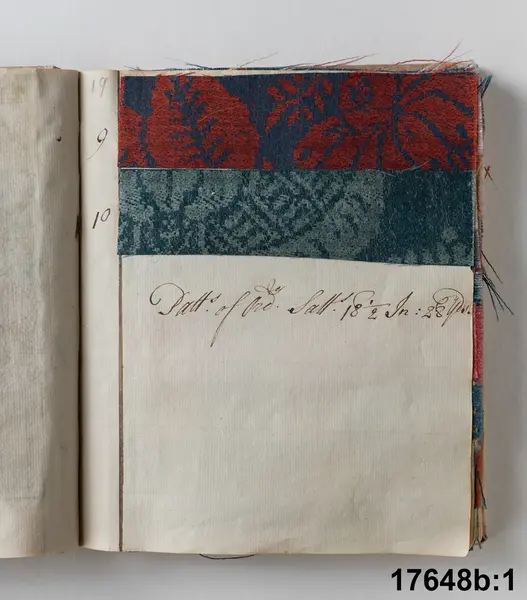 19
9
10
Patt.s of Bro.d Satt.s 18 1/2 In: 28 Yds.
17648b:1